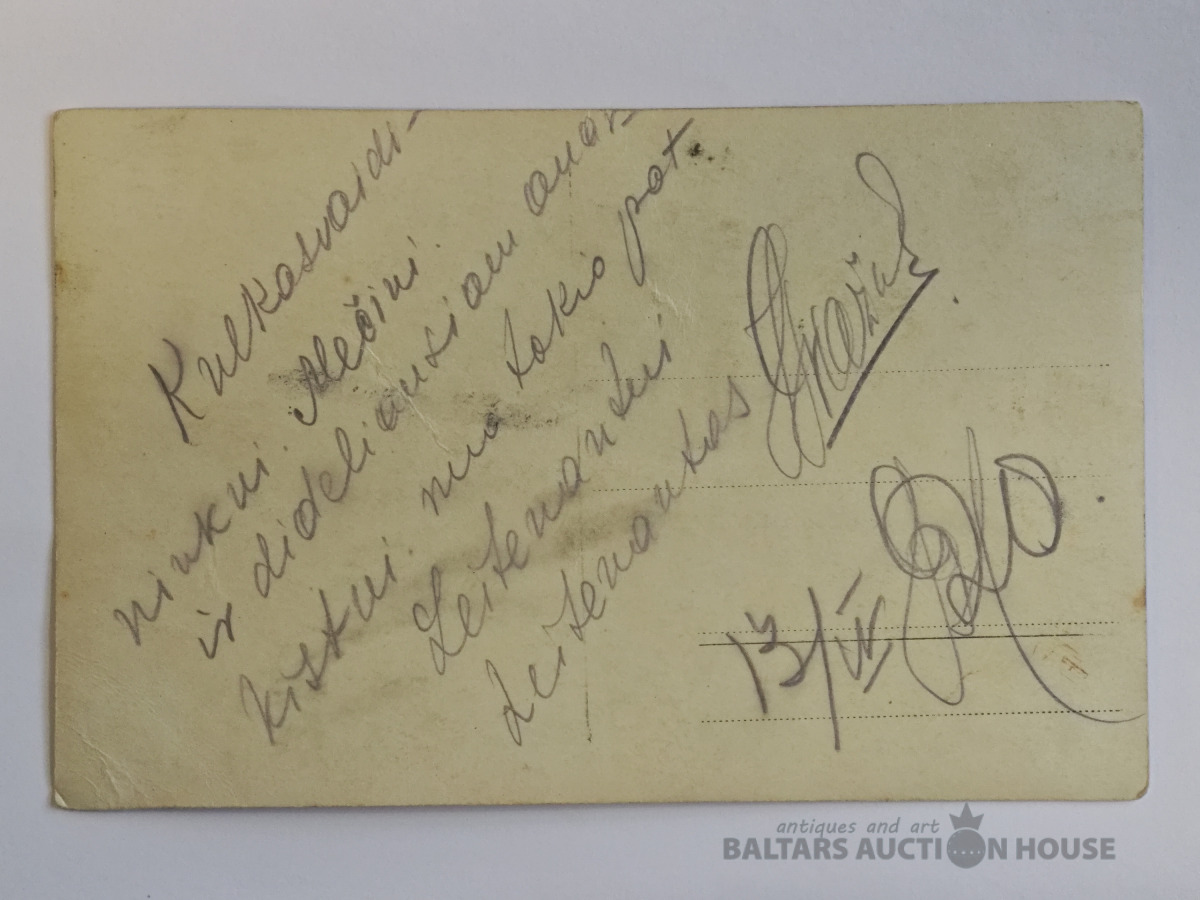 Kulkasvaidi-
ninkui. Mečini.
ir dideliausiam anar-
kistui. nuo tokio pat.
Leitenantui
Leitenantas
13/IV
antiques and art
BALTARS AUCTION HOUSE